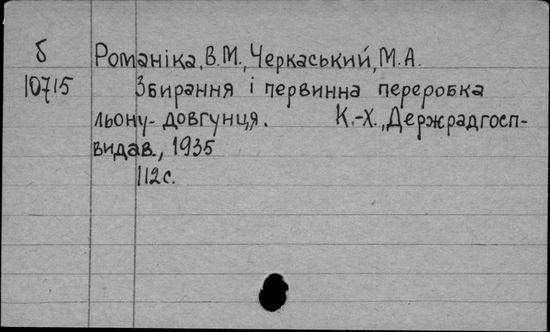 б Романіка, В.М., Черкаський, М.А.
10715 Збирання і первинна переробка
льону-довгунця. К.-Х., Держрадгосп-
видав., 1935
112с.